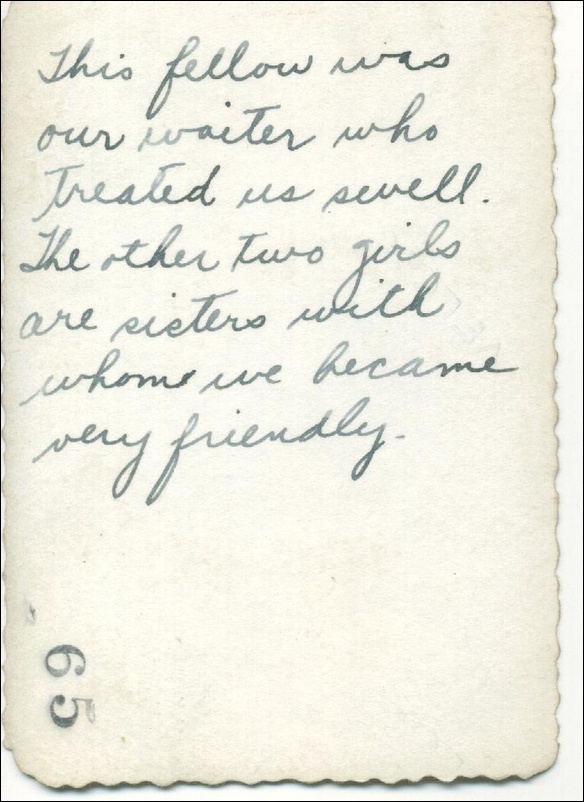 This fellow was
our waiter who
treated us swell.
The other two girls
are sisters with
whom we became
very friendly.
65